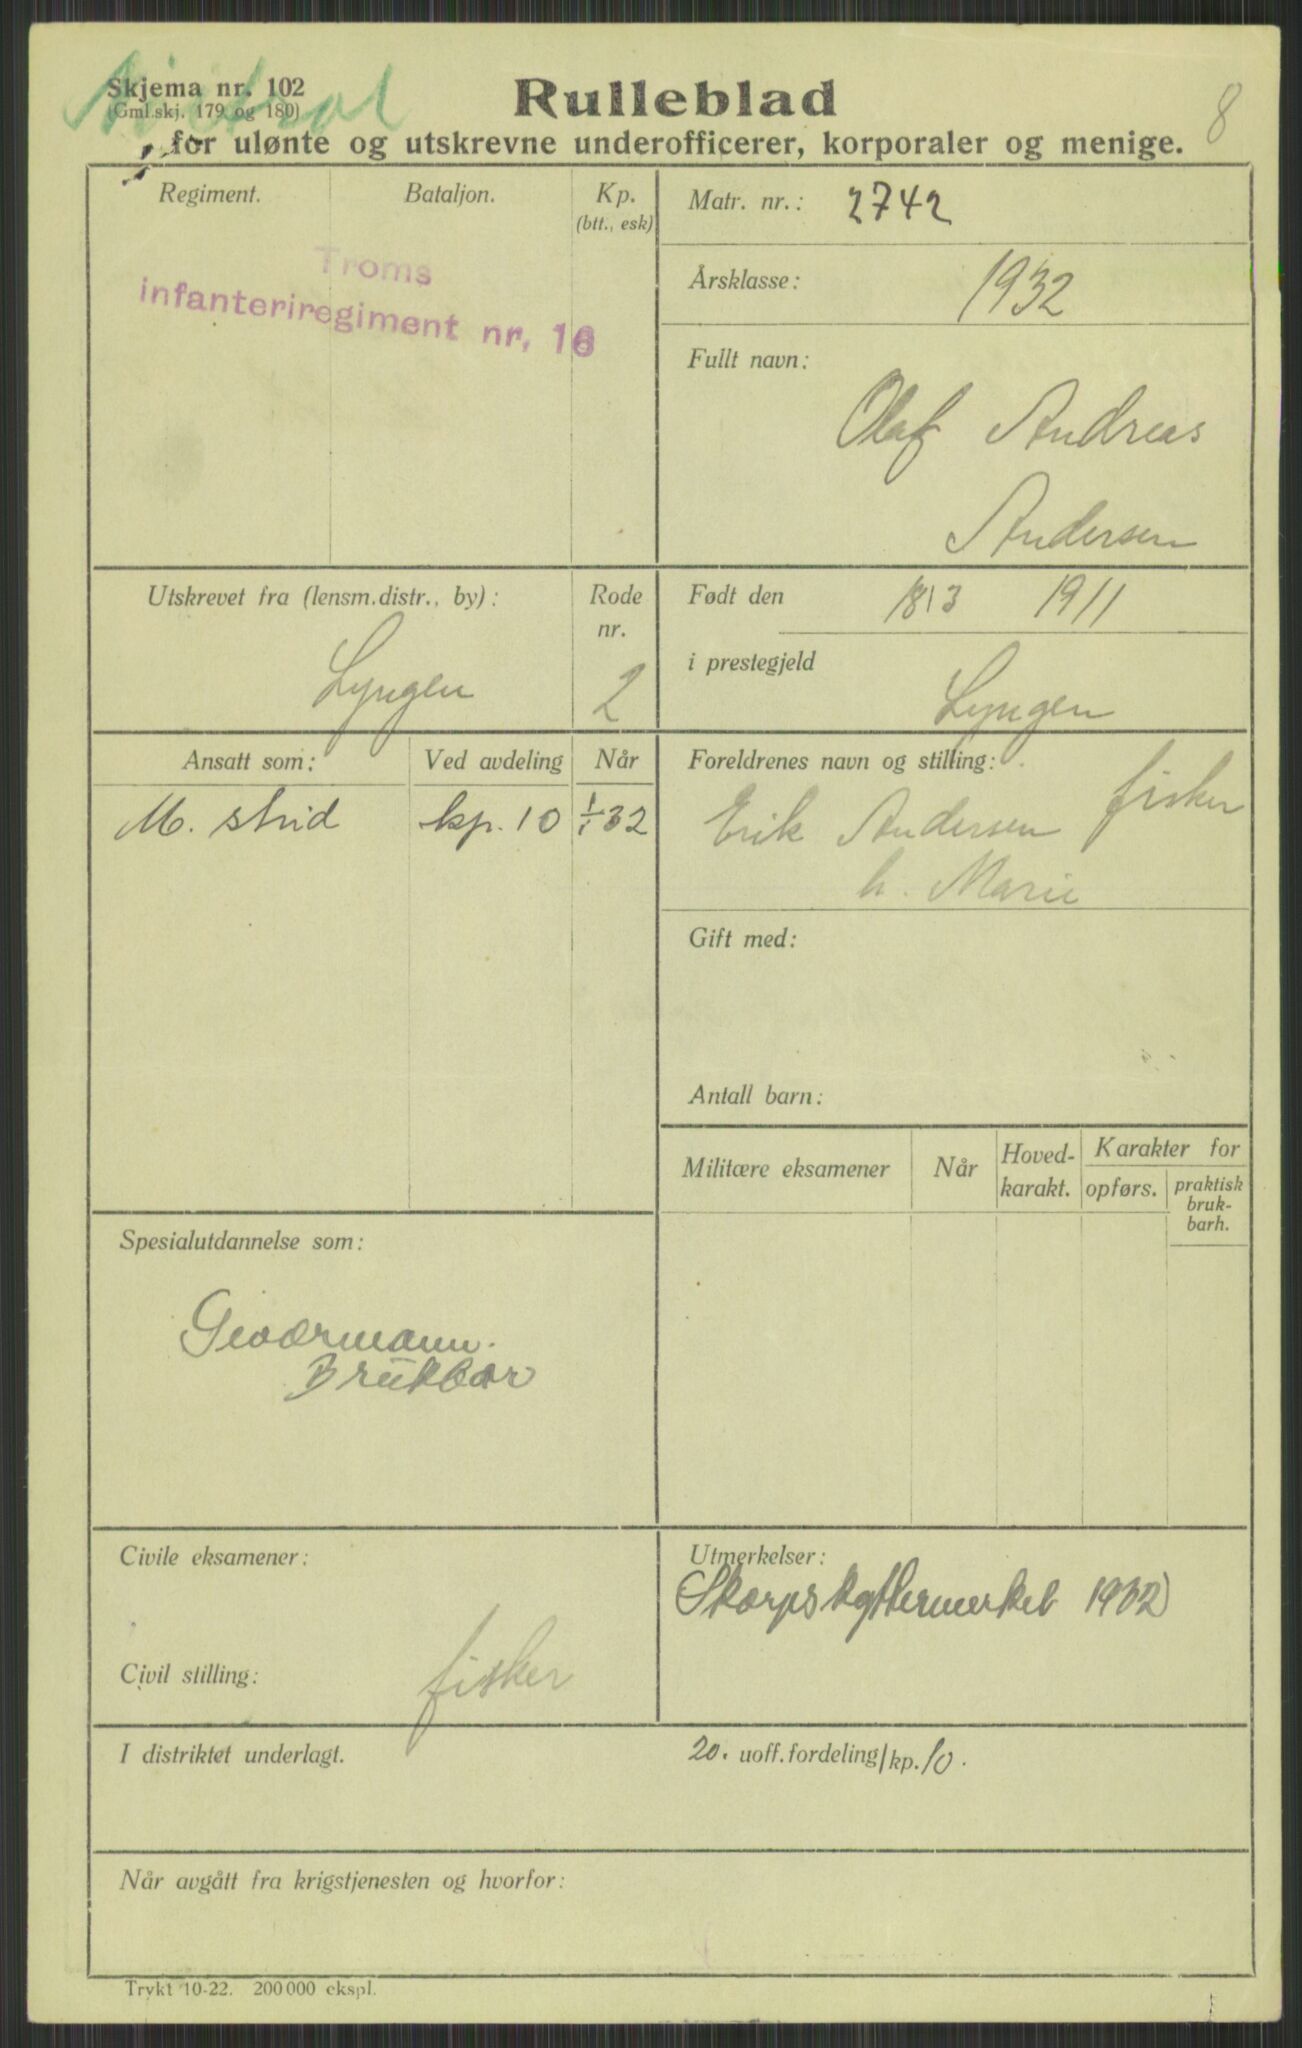 Skjema nr. 102
(Gml.skj. 179 og 180)
Rulleblad
8
for ulønte og utskrevne underofficerer, korporaler og menige.
Regiment.
Bataljon.
Kp.
(btt., esk)
Troms
infanteriregiment nr. 16
Matr. nr.: 2742
Årsklasse: 1932
Fullt navn:
Olaf Andreas
Andersen
Utskrevet fra (lensm.distr., by):
Lyngen
Rode
nr.
2
Født den 18/3 1911
i prestegjeld
Lyngen
Ansatt som:
Ved avdeling
Når
M. strid
kp. 10
1/1 32
Foreldrenes navn og stilling:
Erik Andersen fisker
h. Marie
Gift med:
Antall barn:
Militære eksamener
Når
Hoved-
karakt.
Karakter for
opførs.
praktisk
bruk-
barh.
Spesialutdannelse som:
Geværmann.
Brukbar
Civile eksamener:
Civil stilling: fisker
Utmerkelser:
Skarpskyttermerket 1932
I distriktet underlagt.
20. uoff.fordeling/kp.10.
Når avgått fra krigstjenesten og hvorfor:
Trykt 10-22. 200 000 ekspl.